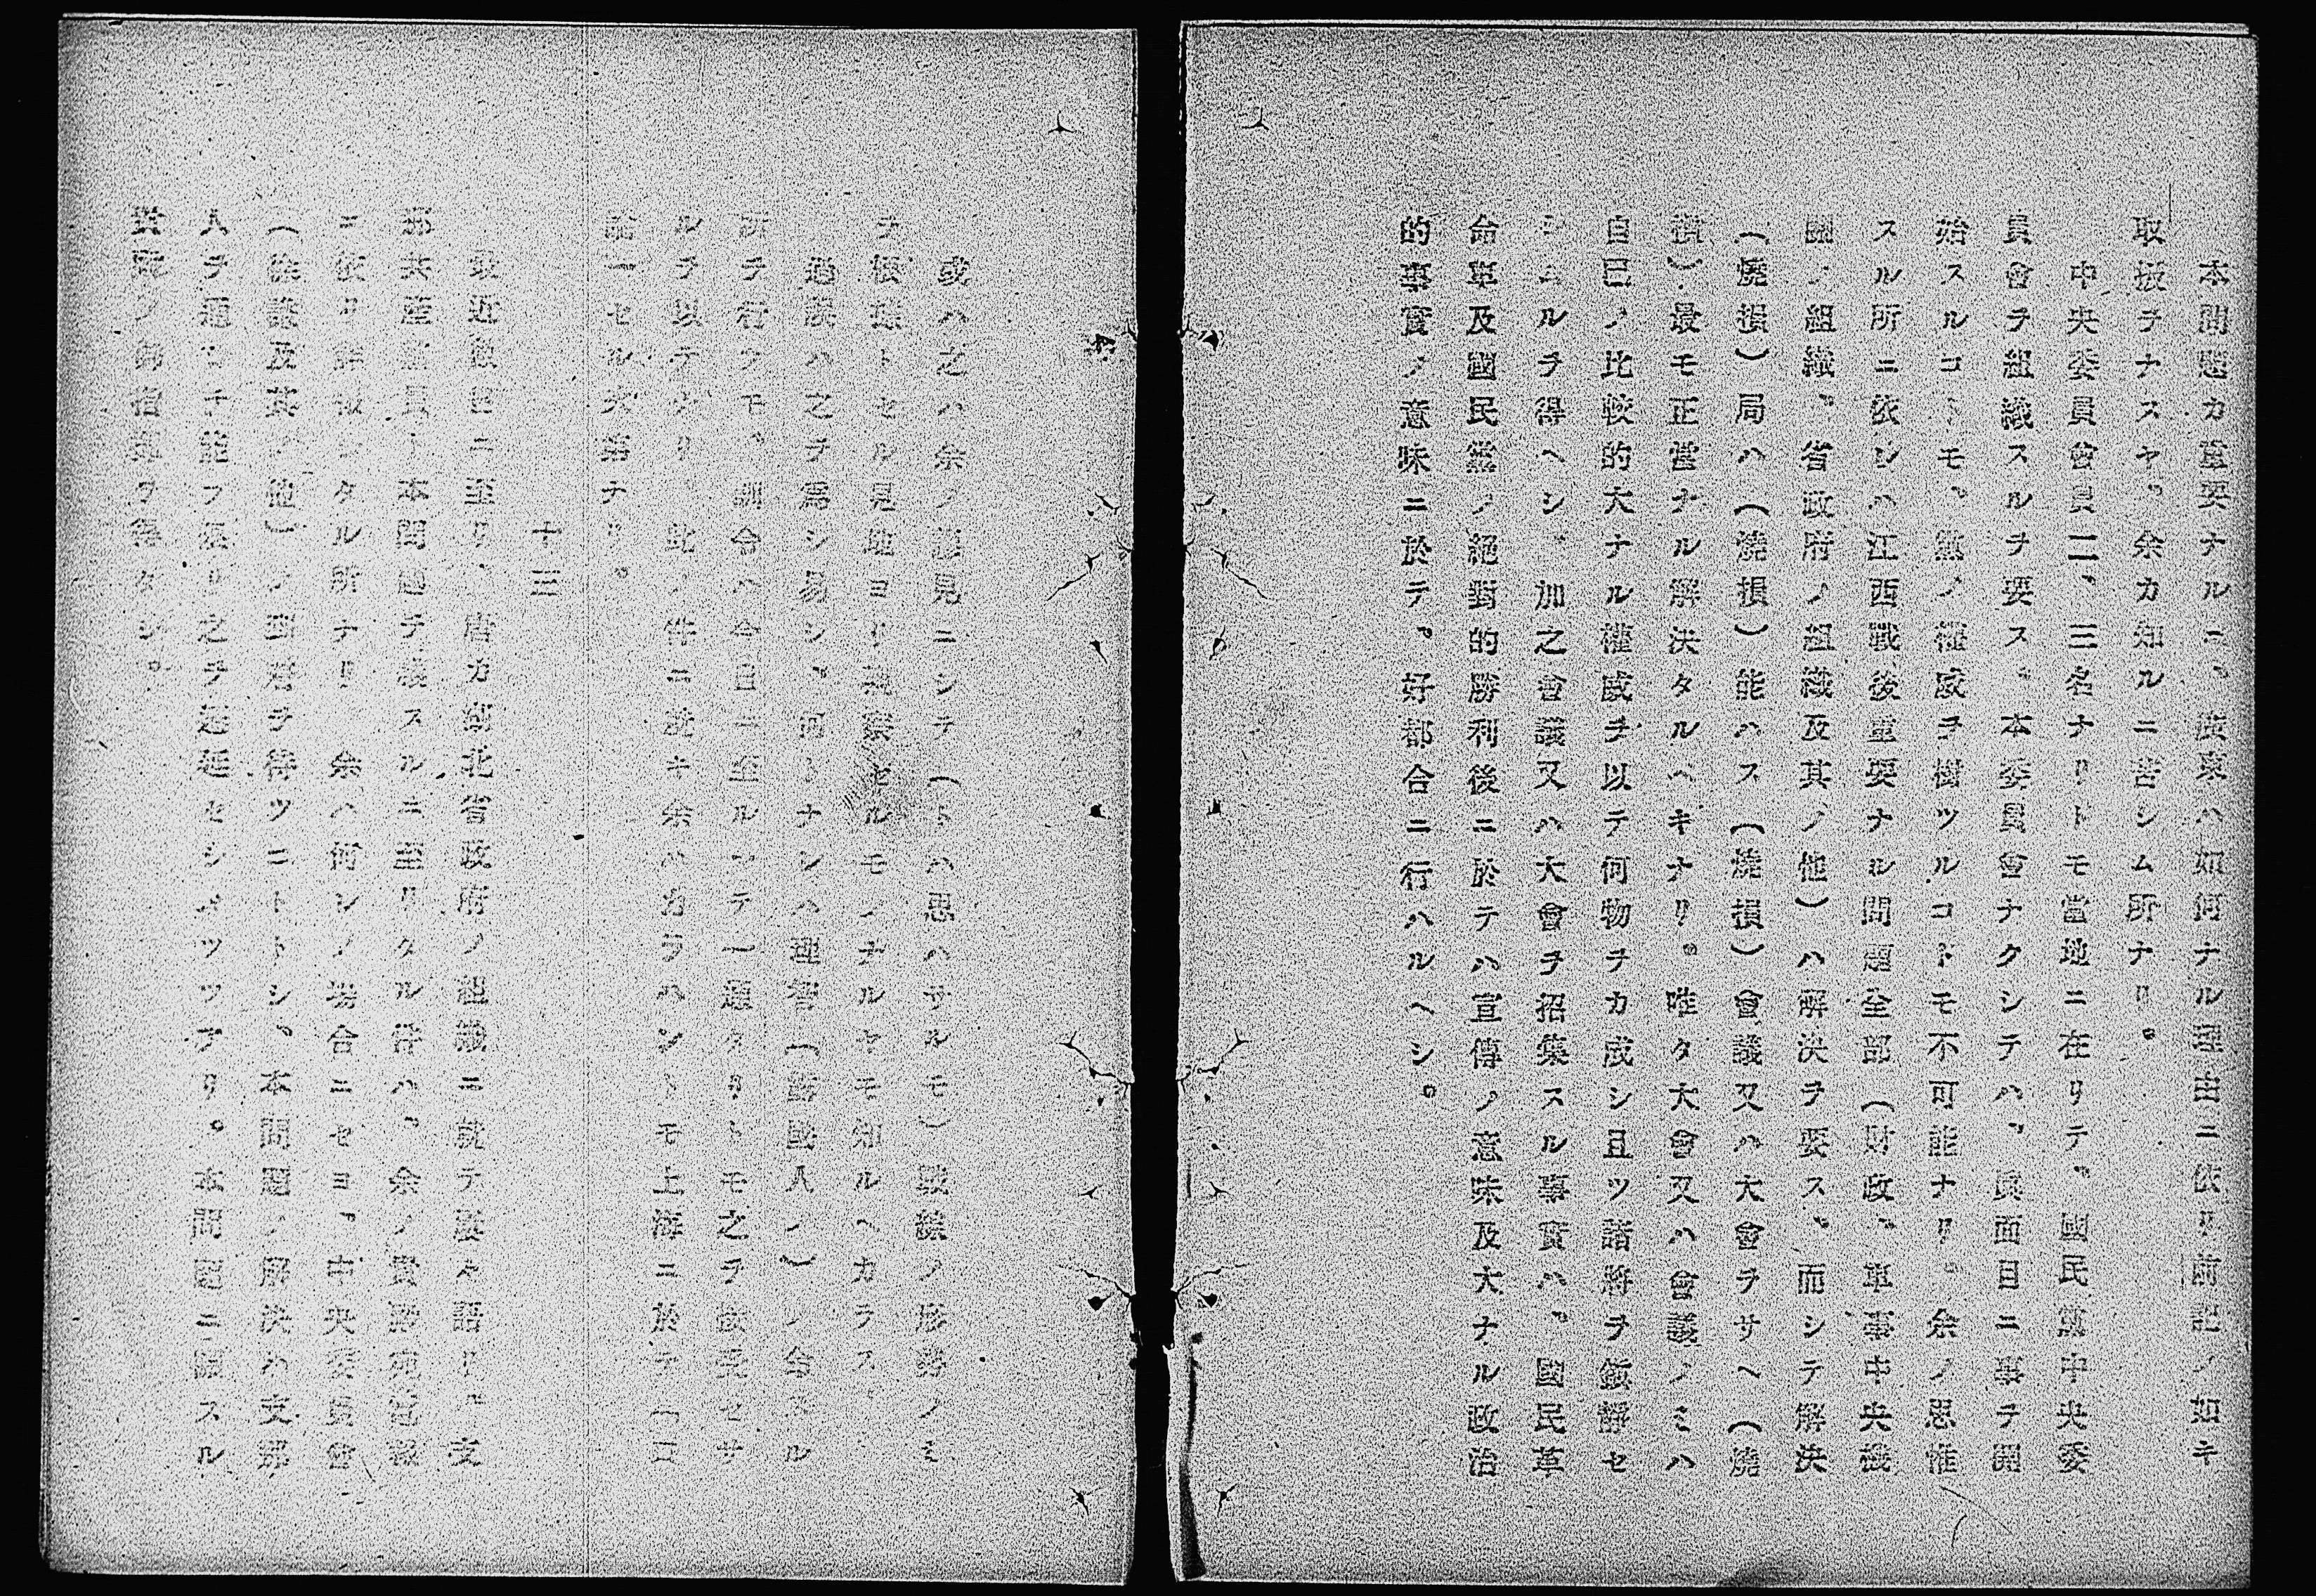 本問題カ重要ナルニ、廣東ハ如何ナル理由ニ依リ前記ノ如キ
取扱ヲナスヤ。余カ知ルニ苦シム所ナリ。
中央委員會員二、三名ナリトモ當地ニ在リテ。國民黨中央委
員會ヲ組織スルヲ要ス。本委員會ナクシテハ、眞面目ニ事ヲ開
始スルコトモ。無ノ權威ヲ樹ツルコトモ不可能ナリ。余ノ思惟
スル所ニ依レハ江西戰後重要ナル問題全部（財政、軍事中央機
關ノ組織。省政府ノ組織及其ノ他）ハ解決ヲ要ス。而シテ解決
（燒損）局ハ（燒損）能ハス（燒損）會議又ハ大會ヲサヘ（燒
損）最モ正當ナル解決タルヘキナリ。唯タ大會又ハ會議ノミハ
自己ノ比較的大ナル權威ヲ以テ何物ヲカ成シ且ツ諸將ヲ鎭靜セ
シムルヲ得ヘシ。加之會議又ハ大會ヲ招集スル事實ハ。國民革
命軍及國民黨ノ絕對的勝利後ニ於テハ宣傳ノ意味及大ナル政治
的事實ノ意味ニ於テ。好都合ニ行ハルヘシ。
或ハ之ハ余ノ謬見ニシテ（トハ思ハサルモ）戰線ノ形勢ノミ
ヲ根據トセル見地ヨリ觀察セルモノナルヤモ知ルヘカラス、
過誤ハ之ヲ爲シ易シ。何トナレハ理智（露國人ノ）
所ヲ行フモ、訓令ハ今日ニ至ルマテ一通タリトモ之ヲ接受セサ
ルヲ以テナリ 此ノ件ニ就キ余ハ カラハントモ上海ニ於テ「コ
一セル次第ナリ。
十三
最近數日ニ至リ、唐カ湖北省政府ノ組織ニ就テ 々語リ 支
那共產黨員ト本問題ヲ議スルニ至リタル件ハ、余ノ貴
ニ依リ詳 タル所ナリ 余ハ何レノ場合ニセヨ、中央委員會
（徐謙及其ノ他）ノ到着ヲ待ツコトトシ、本問題ノ解決ハ支那
人ヲ 能フ限リ之ヲ遲延セシメツツアリ。本問題ニ關スル
貴 ノ御 ヲ得タシ。